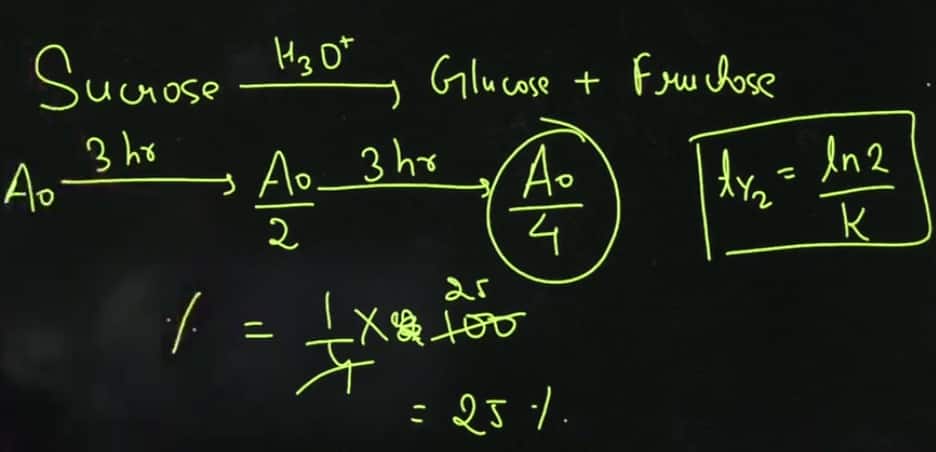 Sucrose H₃O⁺ → Glucose + Fructose
A₀ 3 hr → A₀/2 3 hr → A₀/4
t₁/₂ = ln2/K
% = 1/4 × 100 25
= 25 %.